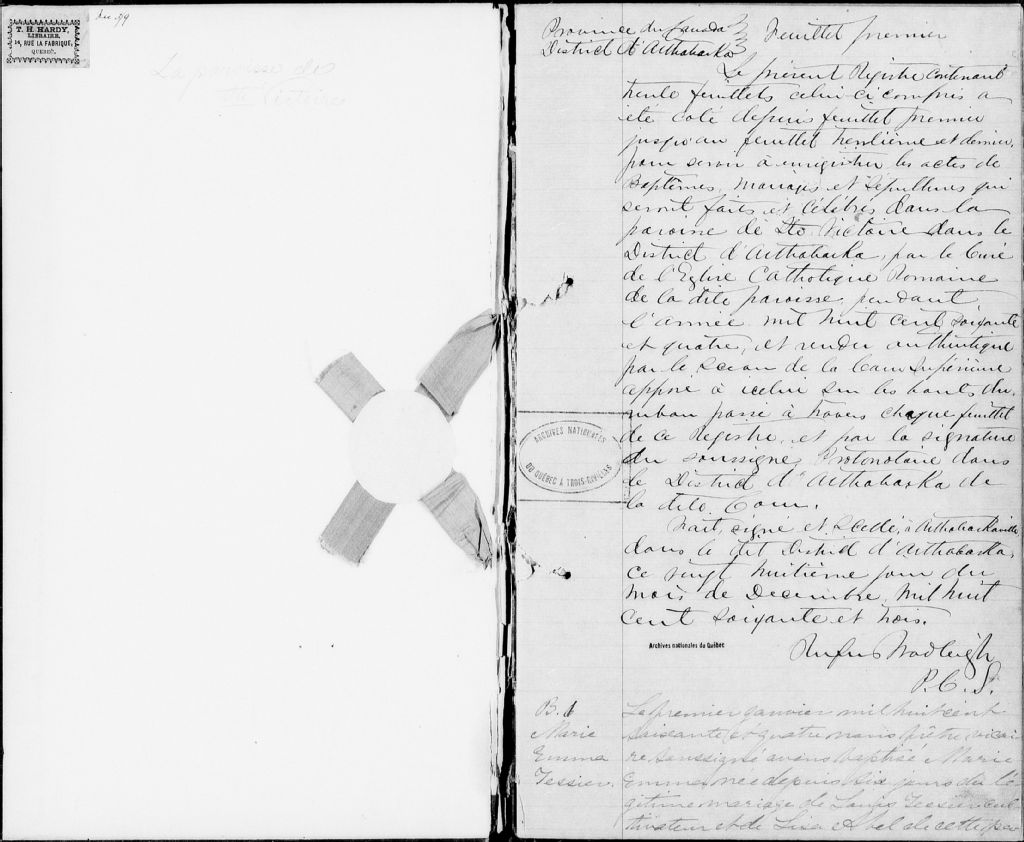 T. H. HARDY,
LIBRAIRE,
14, RUE LA FABRIQUE,
QUEBEC.
La paroisse de
Ste Victoire
Province du Canada
District d'Arthabaska
Feuillet premier
Le présent Registre contenant
trente feuillets celui ci compris a
été coté depuis feuillet premier
jusqu'au feuillet trentième et dernier,
pour servir à enregistrer les actes de
Baptêmes, Mariages et Sépultures qui
seront faits et célébrés dans la
paroisse de Ste Victoire dans le
District d'Arthabaska, par le Curé
de l'Eglise Catholique Romaine
de la dite paroisse, pendant
l'année mil huit cent soixante
et quatre, et rendu authentique
par le sceau de la Cour Supérieure
apposé à icelui sur les bouts du
ruban passé à travers chaque feuillet
de ce Registre, et par la signature
du soussigné Protonotaire dans
le District d'Arthabaska de
la dite Cour.
Fait, signé et scellé, à Arthabaskaville
dans le dit District d'Arthabaska,
ce vingt huitième jour du
mois de Decembre, mil huit
cent soixante et trois.
Rufus Wadleigh
P. C. S.
ARCHIVES NATIONALES
DU QUÉBEC À TROIS-RIVIÈRES
Archives nationales du Québec
B. 1
Marie
Emma
Tessier.
Le premier janvier mil huit cent
soixante et quatre nous prêtre vicai
re soussigné avons baptisé Marie
Emma, nee depuis six jours du lé
gitime mariage de Louis Tessier cul
tivateur et de Lisa Abel de cette pa